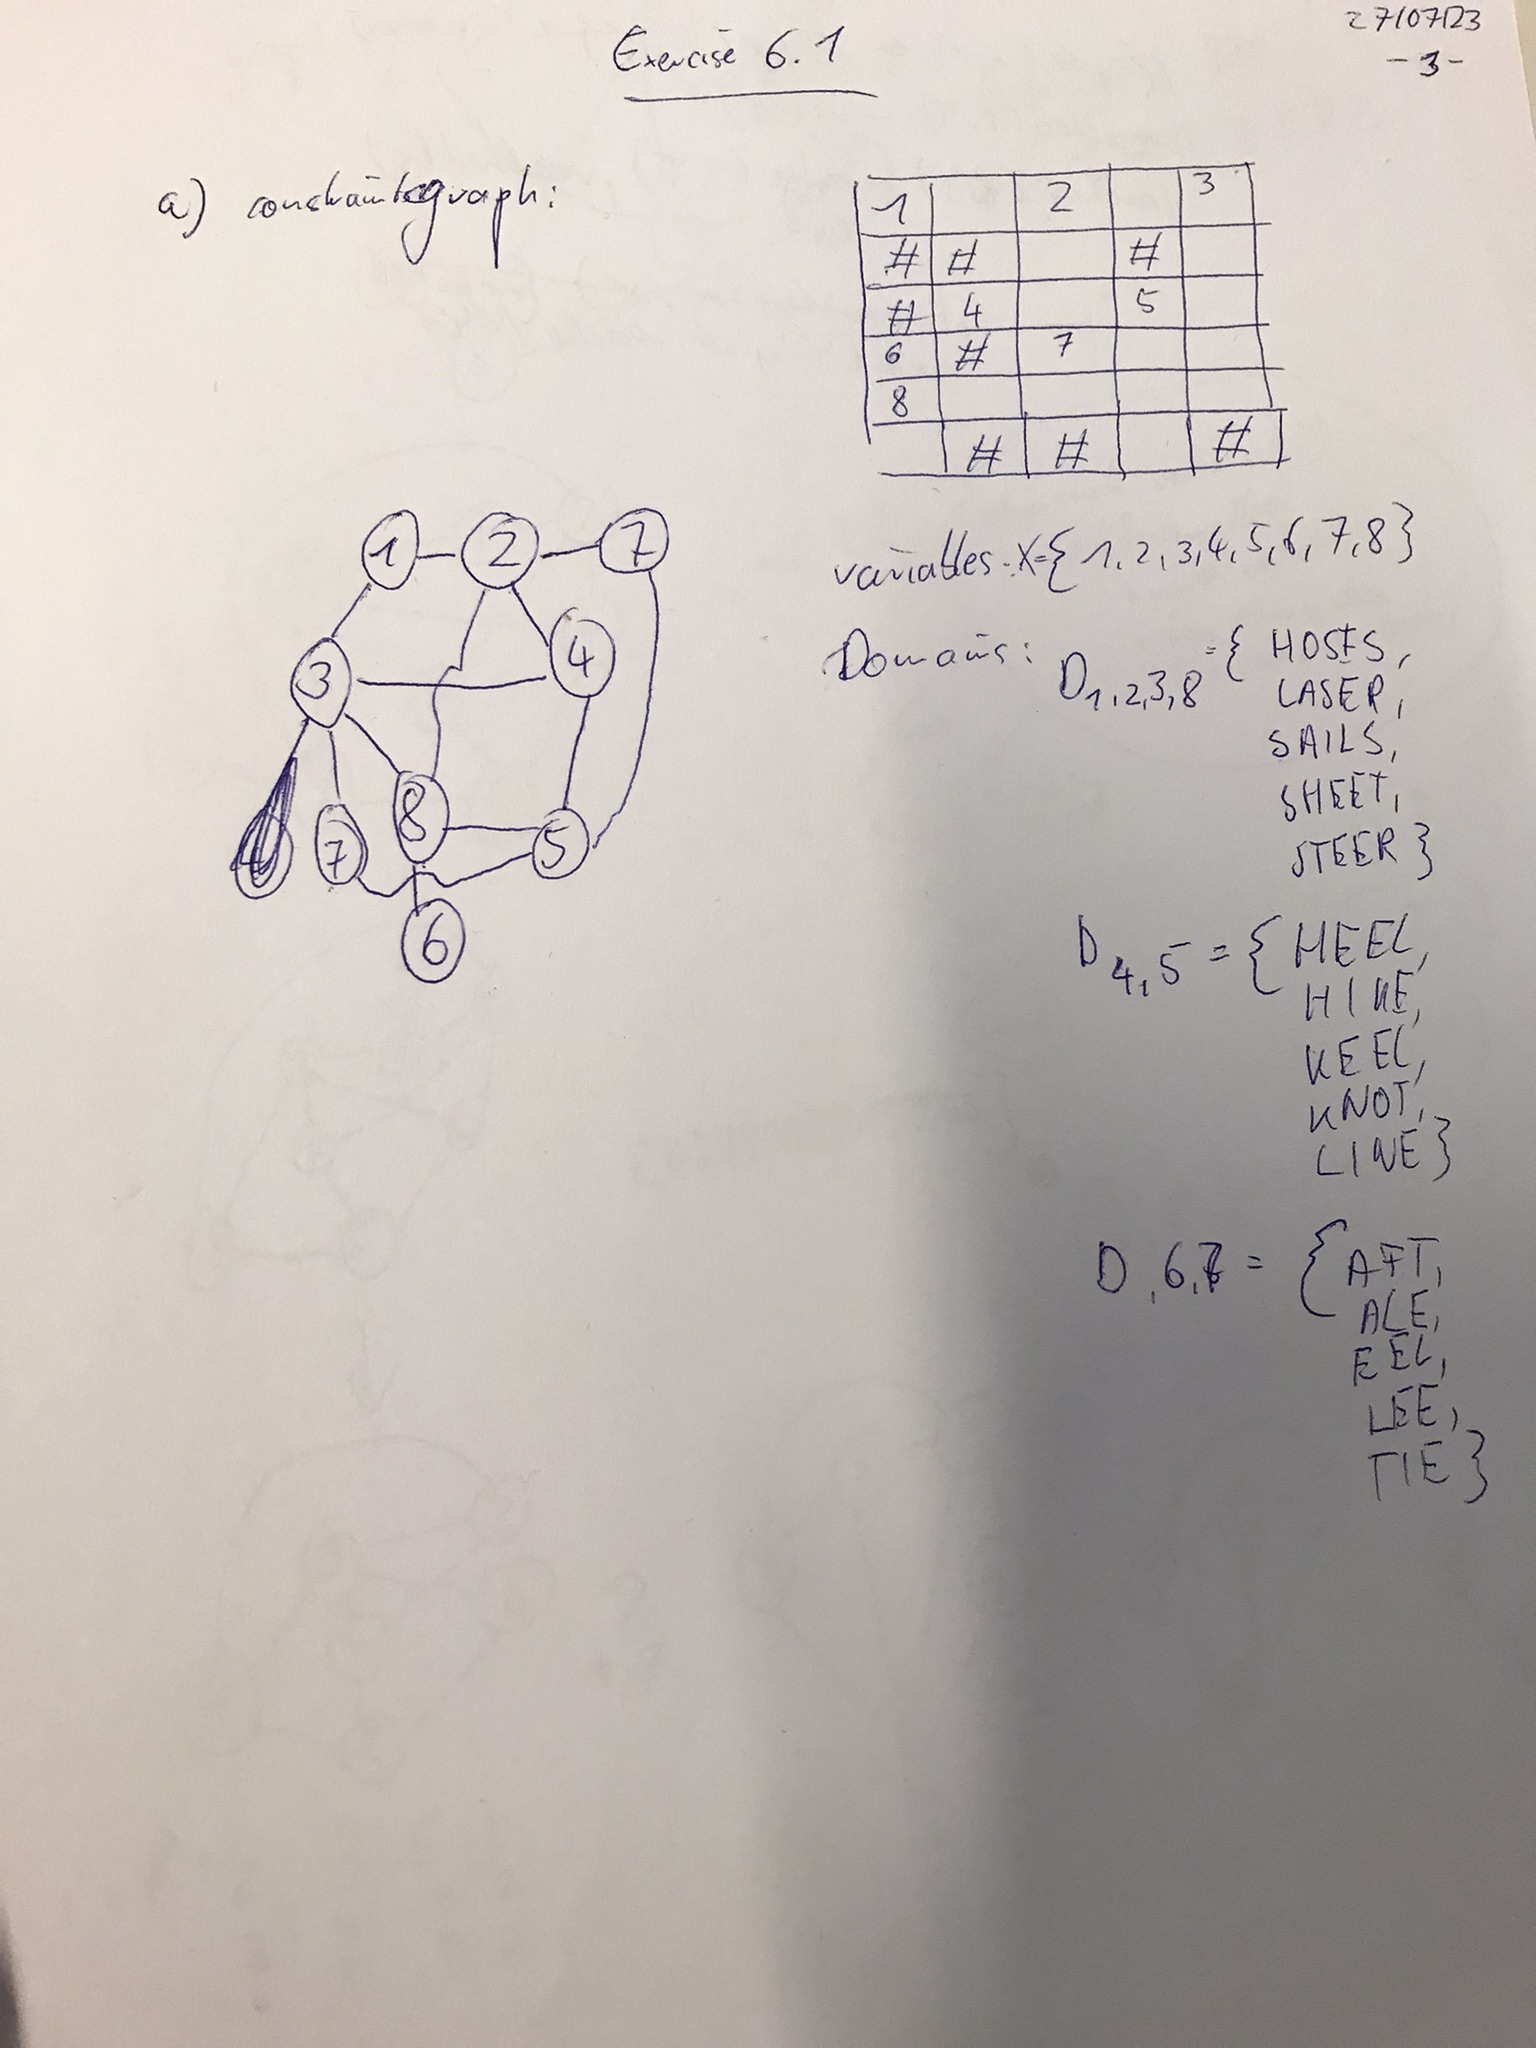 27/07/23
-3-
Exercise 6.1
a) constraintsgraph:
1 2 3
# # #
# 4 5
6 # 7
8
# # #
1 2 7
4
3
7 8 5
6
variables: X={1,2,3,4,5,6,7,8}
Domains: D1,2,3,8 = { HOSES,
LASER,
SAILS,
SHEET,
STEER }
D4,5 = { HEEL,
HIKE,
KEEL,
KNOT,
LINE }
D,6,7 = { AFT,
ALE,
EEL,
LEE,
TIE }